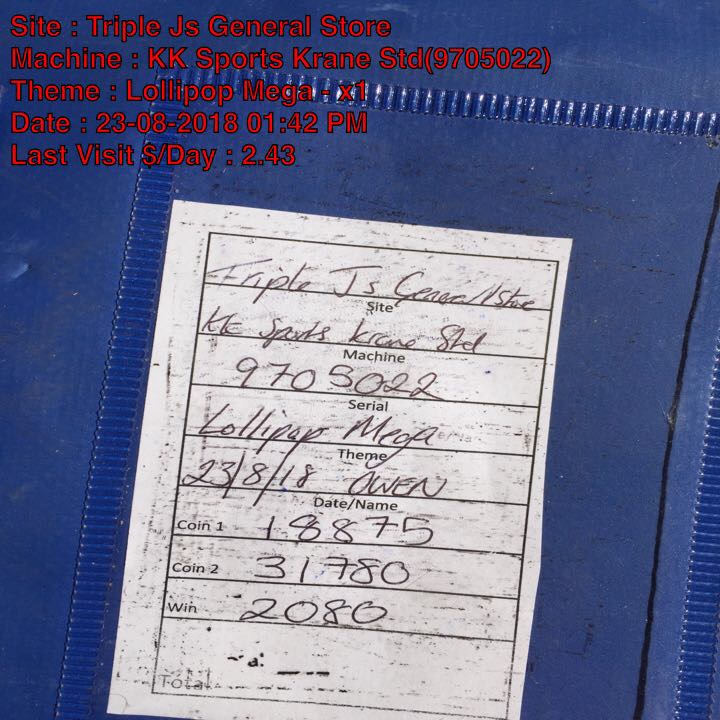 Site : Triple Js General Store
Machine : KK Sports Krane Std(9705022)
Theme : Lollipop Mega - x1
Date : 23-08-2018 01:42 PM
Last Visit $/Day : 2.43
Triple Js General Store
Site
KK Sports Krane Std
Machine
9705022
Serial
Lollipop Mega
Theme
23/8/18 OWEN
Date/Name
Coin 1 18875
Coin 2 31780
Win 2080
Total